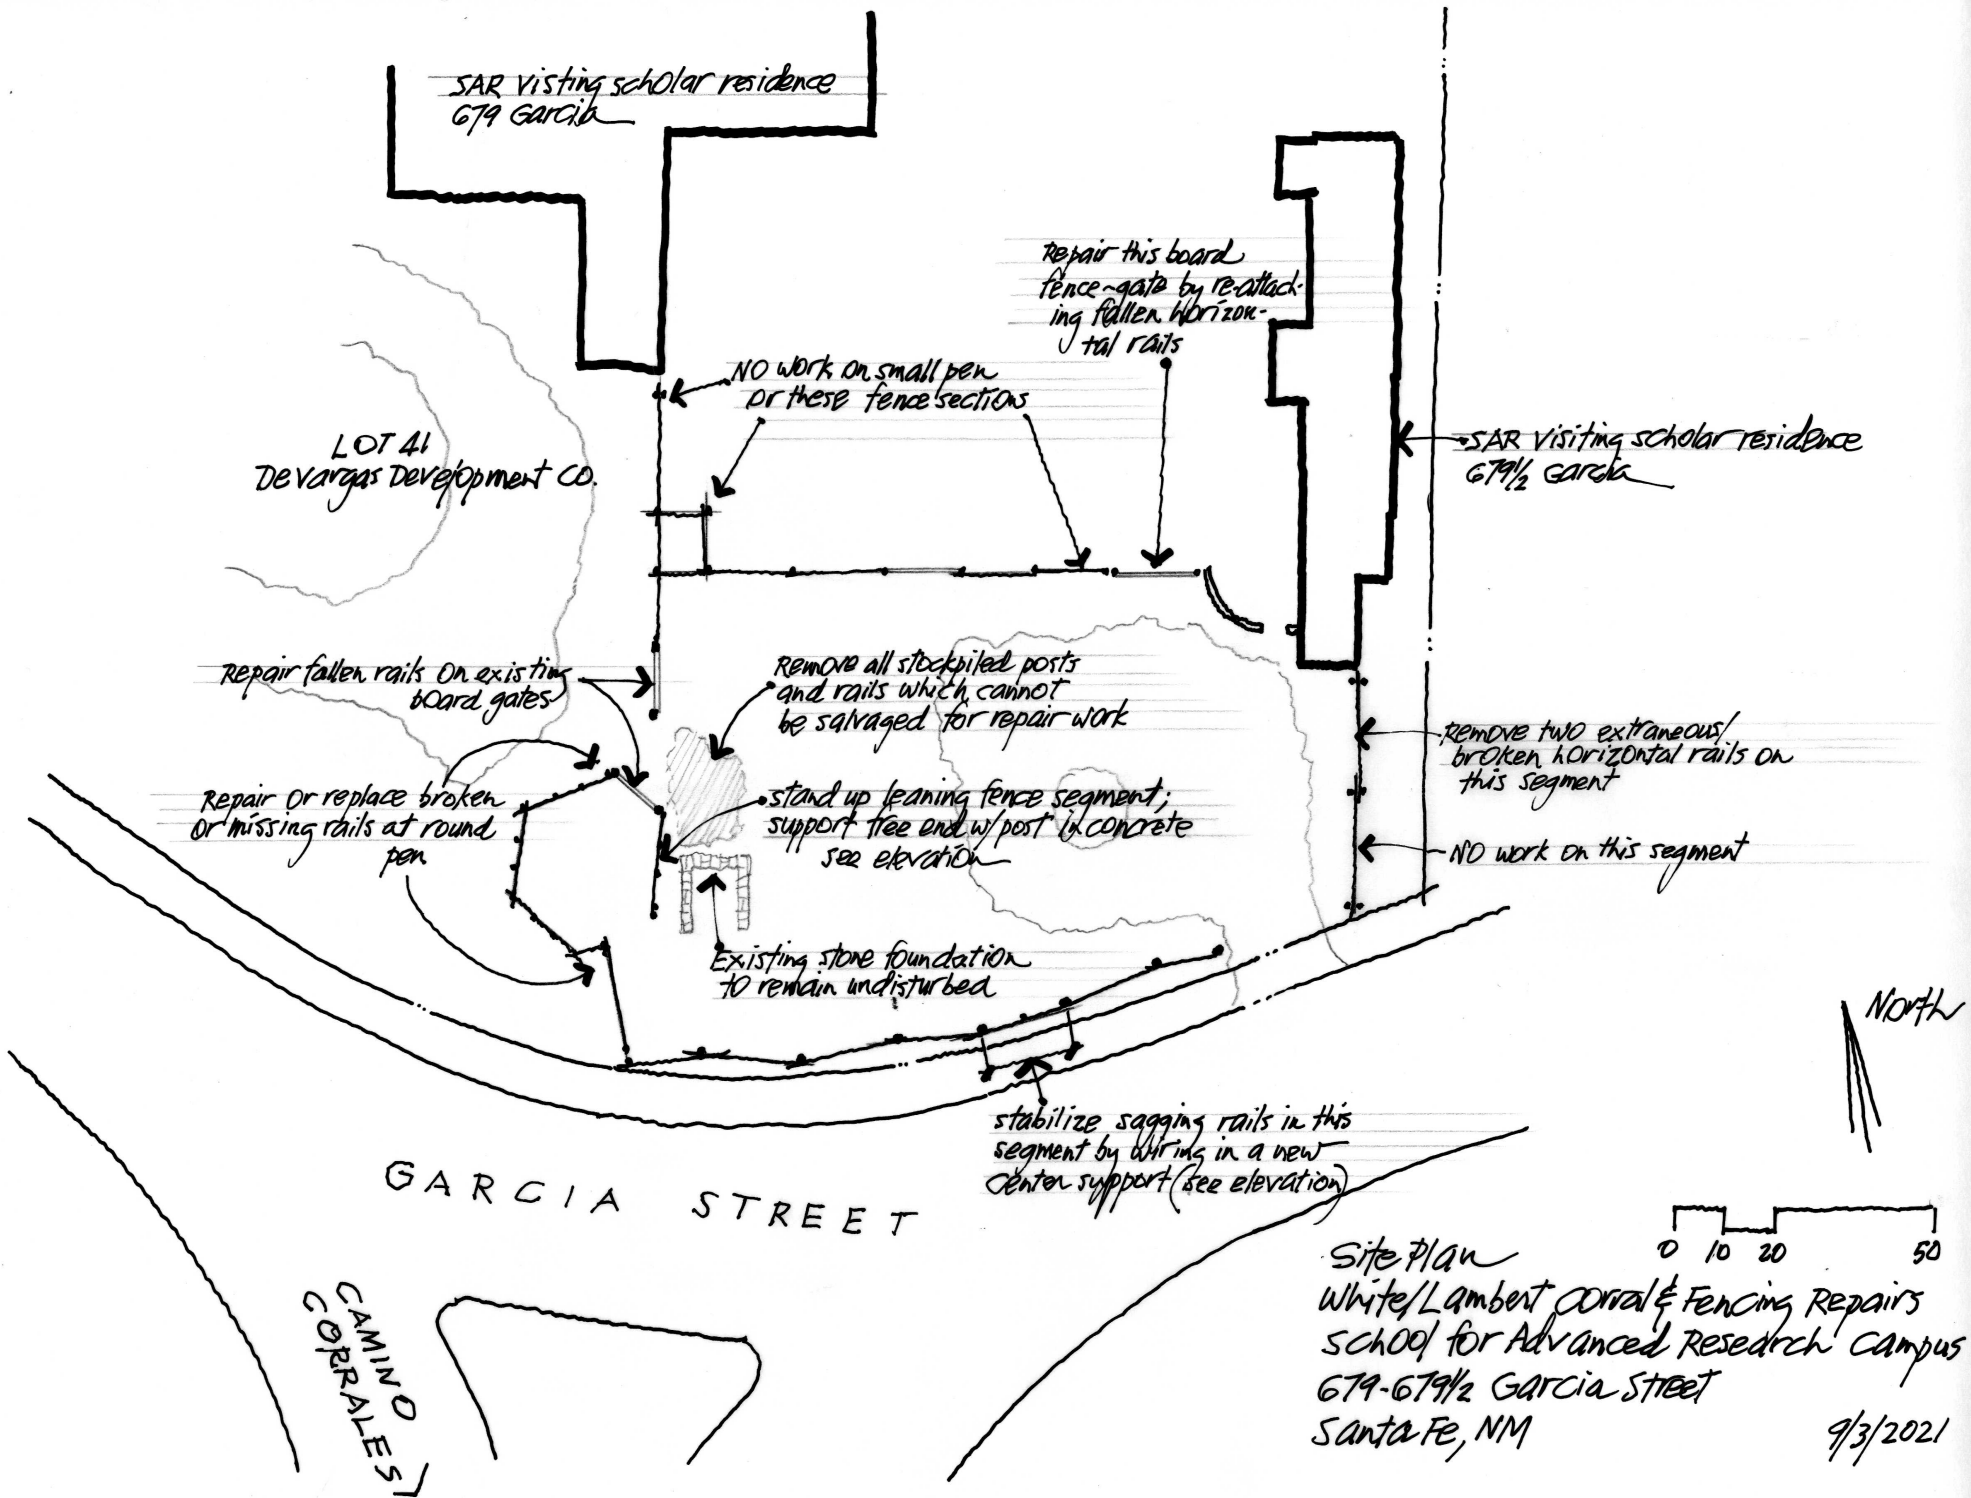 SAR visting scholar residence
679 Garcia
Repair this board
fence-gate by re-attach-
ing fallen horizon-
tal rails
NO work on small pen
or these fence sections
LOT 41
DeVargas Development CO.
SAR visiting scholar residence
679 1/2 Garcia
Repair fallen rails on existing
board gates
Remove all stockpiled posts
and rails which cannot
be salvaged for repair work
Remove two extraneous/
broken horizontal rails on
this segment
Repair or replace broken
or missing rails at round
pen
stand up leaning fence segment;
support free end w/post in concrete
see elevation
NO work on this segment
Existing stone foundation
to remain undisturbed
North
stabilize sagging rails in this
segment by wiring in a new
center support (see elevation)
GARCIA STREET
CAMINO
CORRALES
0 10 20 50
Site Plan
White/Lambert Corral & Fencing Repairs
School for Advanced Research Campus
679-679 1/2 Garcia Street
Santa Fe, NM
9/3/2021